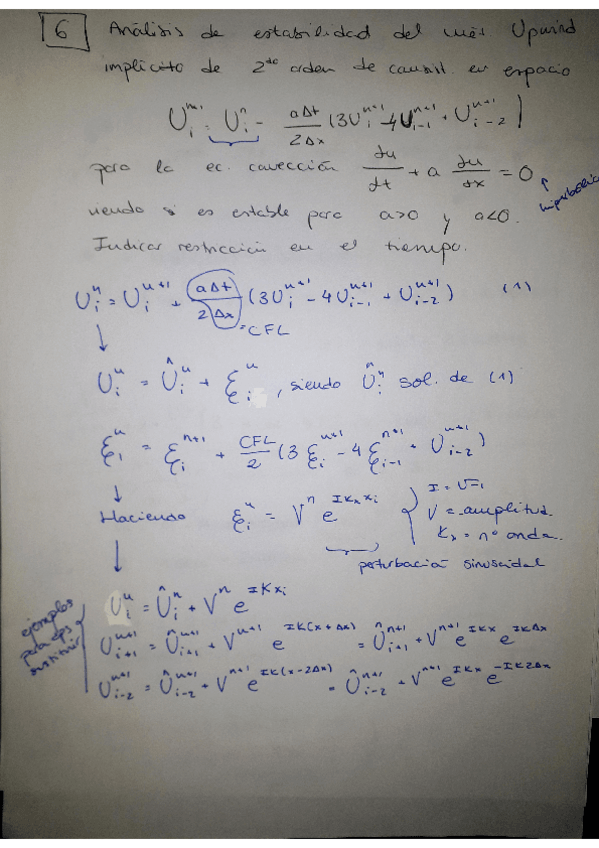 6 Análisis de estabilidad del mét. Upwind
implícito de 2do orden de consist. en espacio
U_i^{n+1} = U_i^n - aΔt/2Δx (3U_i^{n+1} - 4U_{i-1}^{n+1} + U_{i-2}^{n+1})
para la ec. convección du/dt + a du/dx = 0
↑ hiperbólica
viendo si es estable para a>0 y a<0.
Indicar restricción en el tiempo.
U_i^n = U_i^{n+1} + aΔt/2Δx (3U_i^{n+1} - 4U_{i-1}^{n+1} + U_{i-2}^{n+1}) (1)
= CFL
U_i^n = Û_i^n + ε_i^n, siendo Û_i^n sol. de (1)
ε_i^n = ε_i^{n+1} + CFL/2 (3ε_i^{n+1} - 4ε_{i-1}^{n+1} + U_{i-2}^{n+1})
Haciendo ε_i^n = V^n e^{I K_x x_i}
I = √-1
V = amplitud
K_x = nº onda.
perturbación sinusoidal
ejemplos para eps sustituir
U_i^n = Û_i^n + V^n e^{IKx_i}
U_{i+1}^{n+1} = Û_{i+1}^{n+1} + V^{n+1} e^{IK(x+Δx)} = Û_{i+1}^{n+1} + V^{n+1} e^{IKx} e^{IKΔx}
U_{i-2}^{n+1} = Û_{i-2}^{n+1} + V^{n+1} e^{IK(x-2Δx)} = Û_{i-2}^{n+1} + V^{n+1} e^{IKx} e^{-IK2Δx}